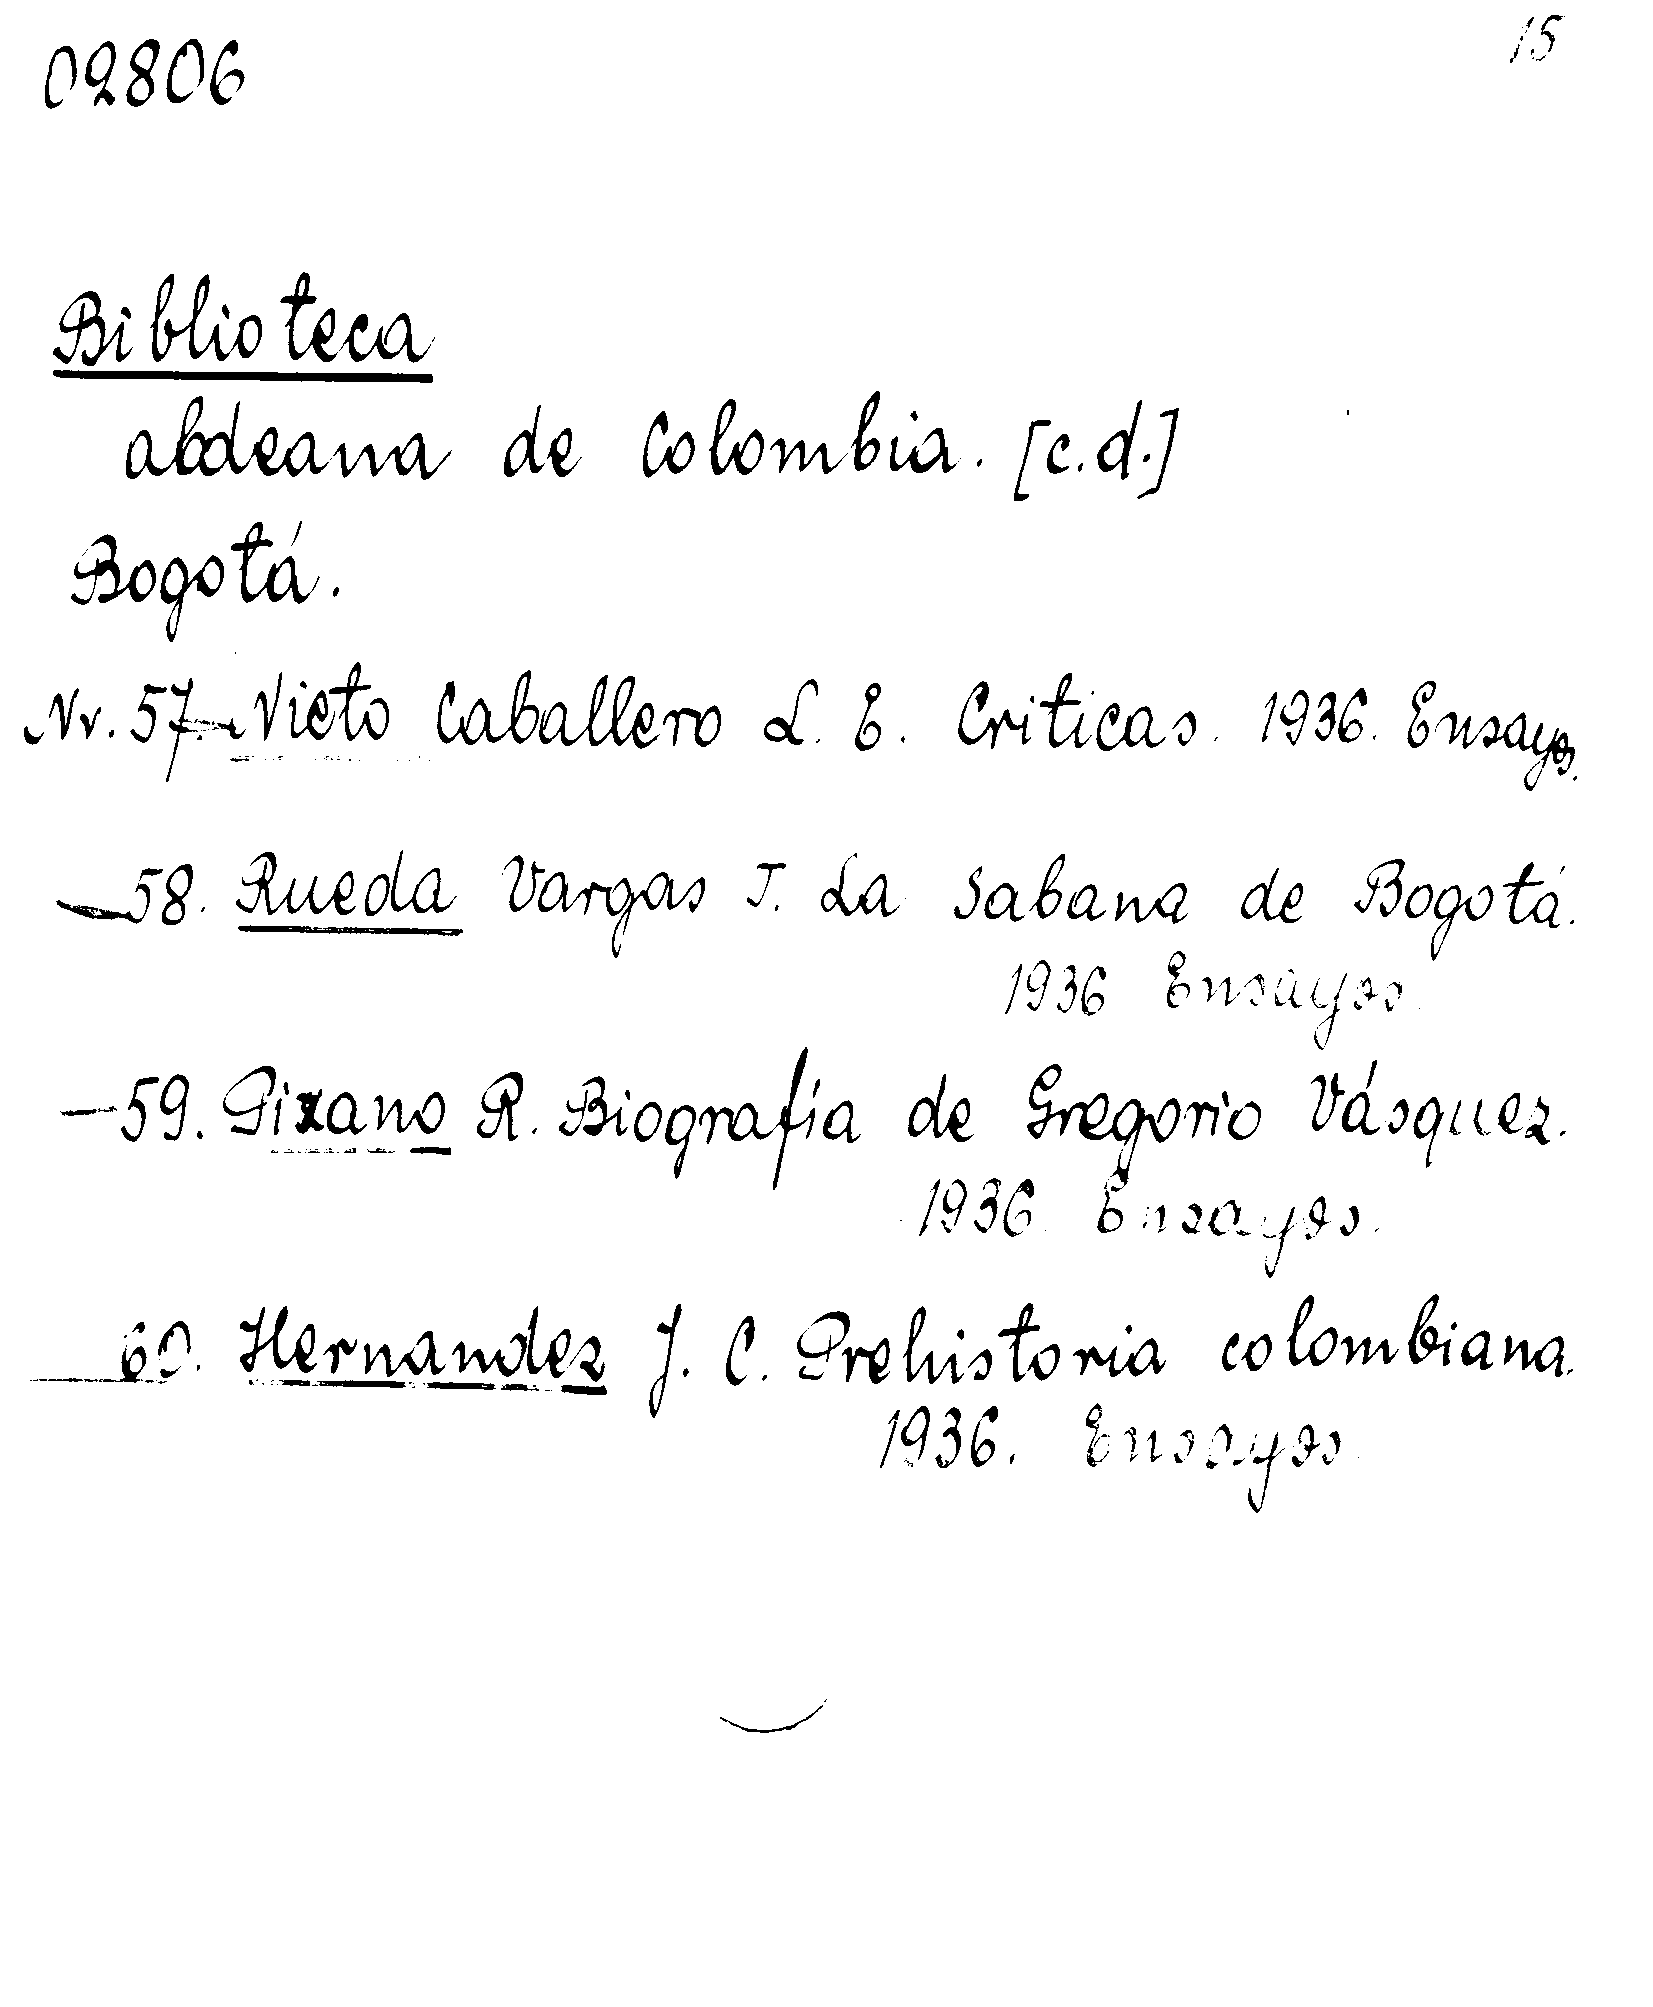 02806
15
Biblioteca
aldeana de Colombia. [c.d.]
Bogotá.
Nr. 57 Nieto Caballero L. E. Criticas. 1936. Ensayos.
— 58. Rueda Vargas T. La Sabana de Bogotá.
1936 Ensayos.
— 59. Pizano R. Biografía de Gregorio Vásquez.
1936. Ensayos.
— 60. Hernandez J. C. Prehistoria colombiana.
1936. Ensayos